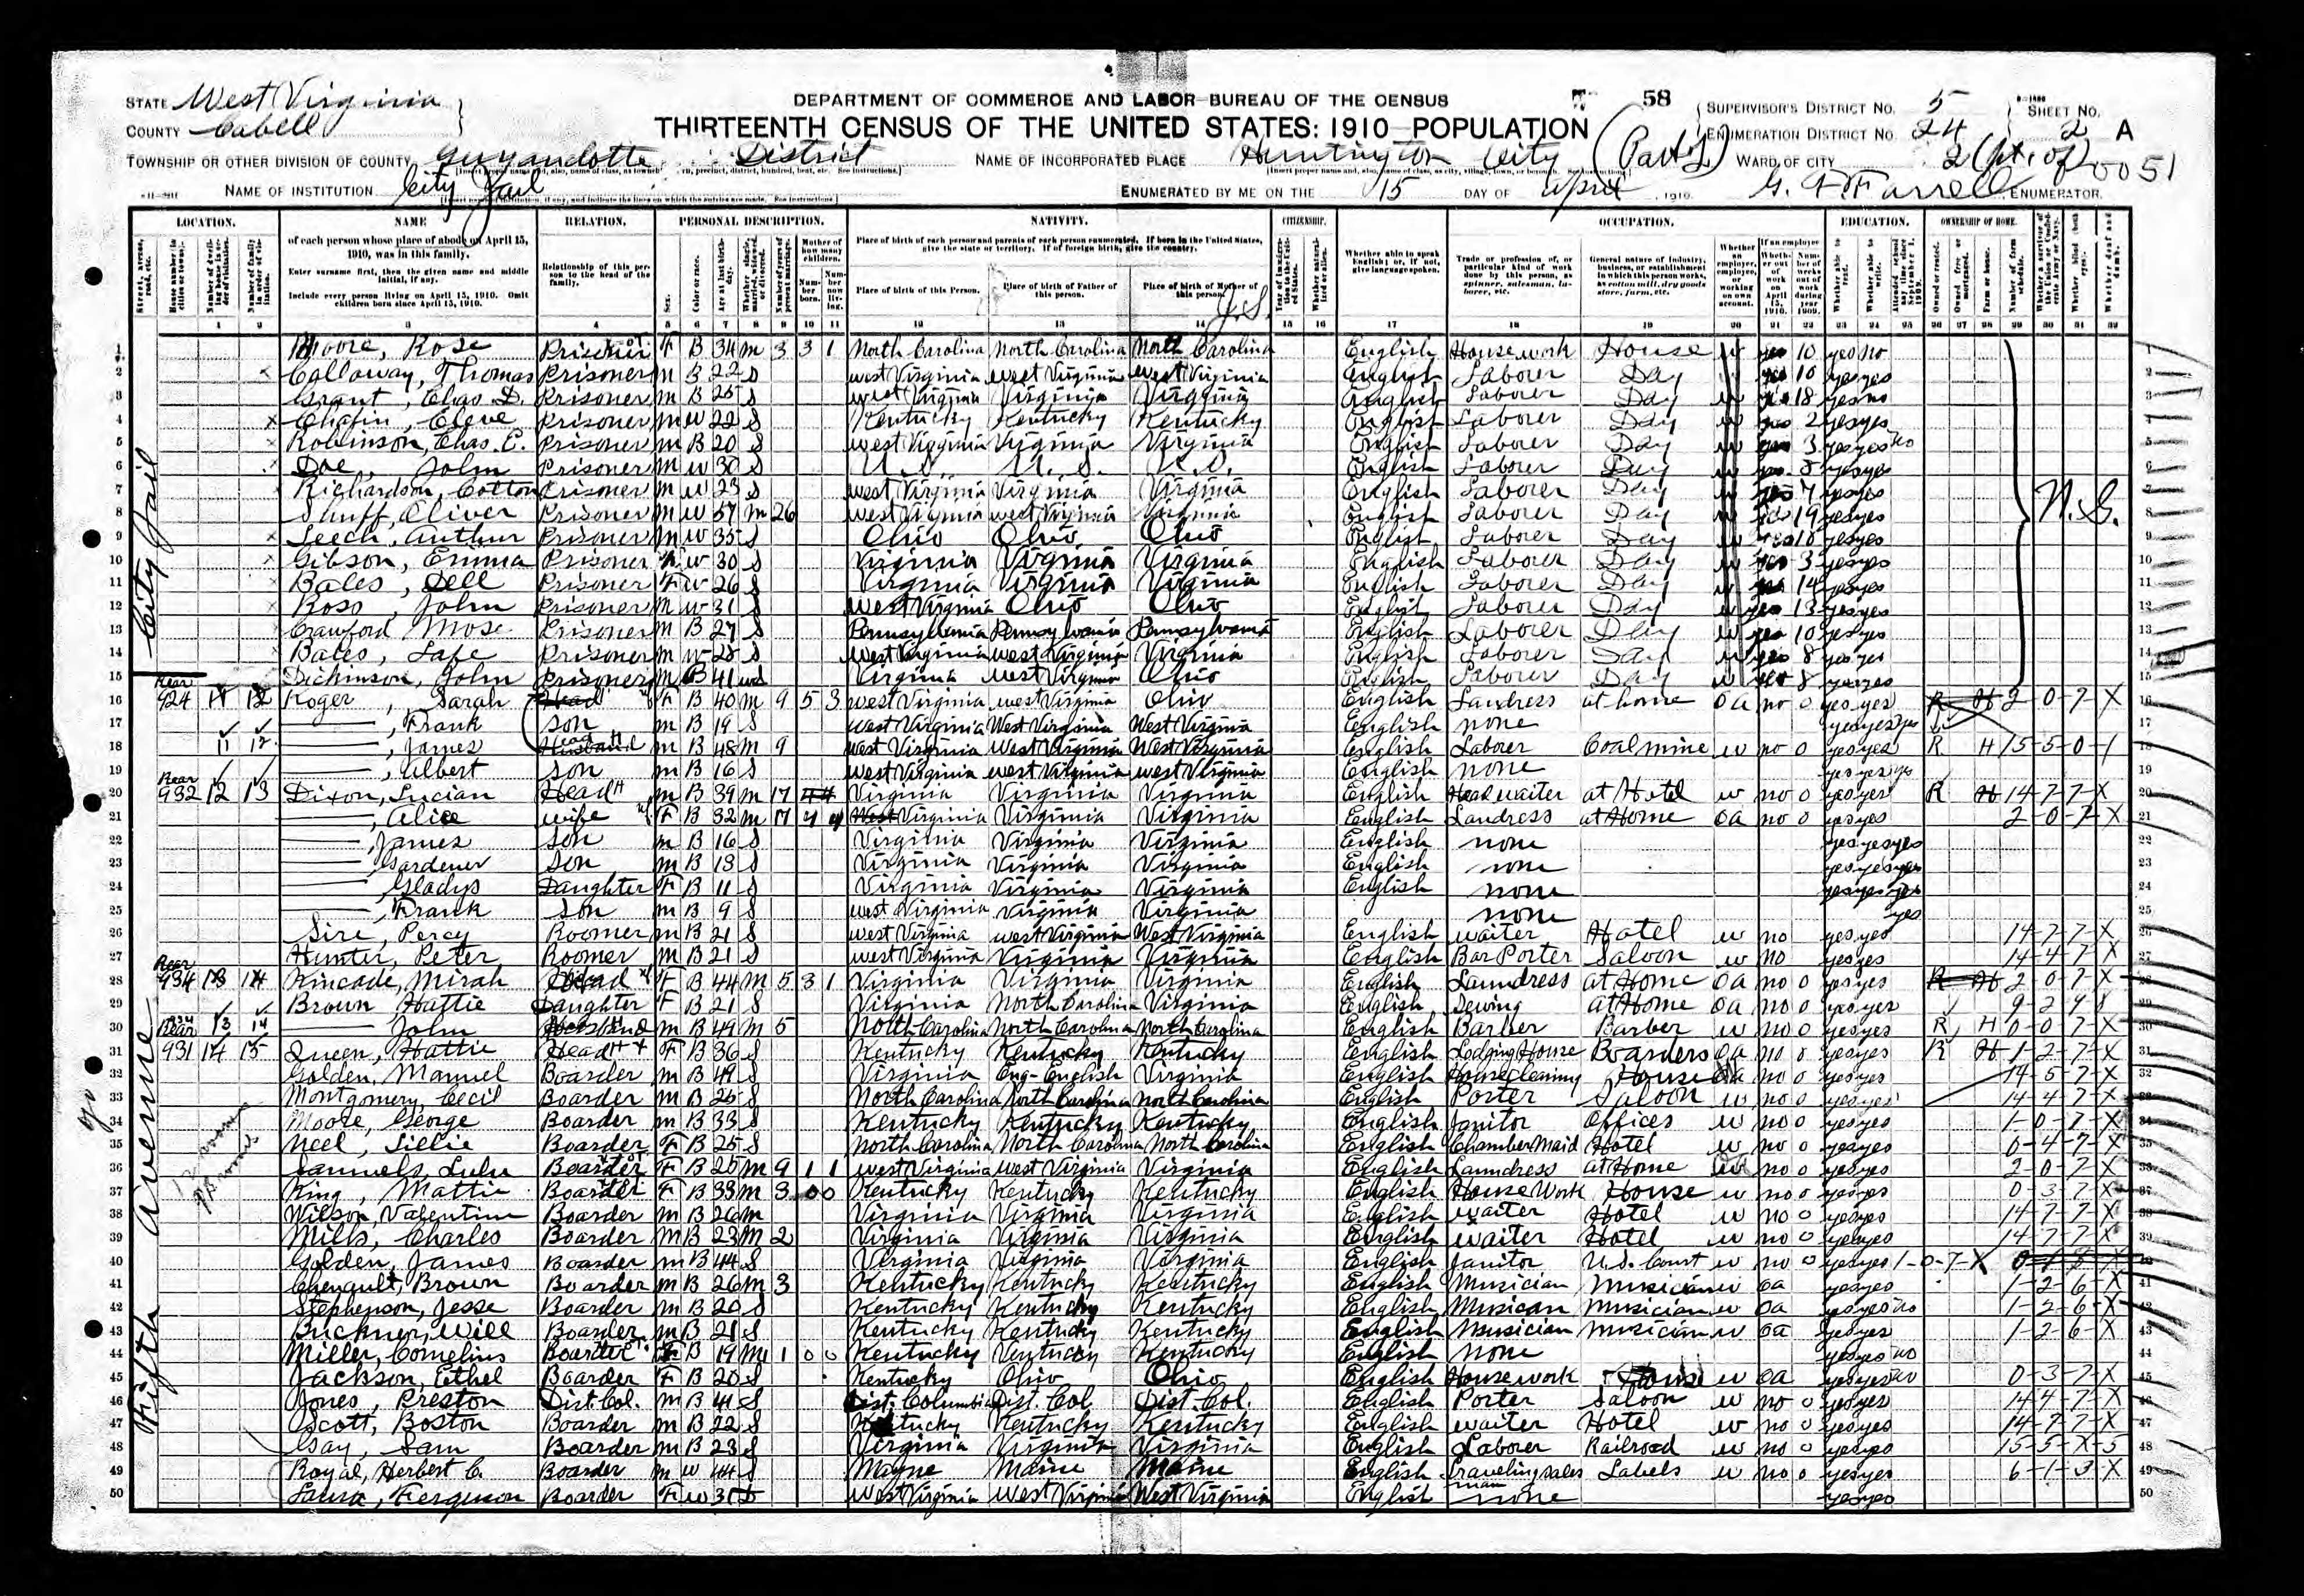 58
DEPARTMENT OF COMMERCE AND LABOR—BUREAU OF THE CENSUS
THIRTEENTH CENSUS OF THE UNITED STATES: 1910—POPULATION
STATE West Virginia
COUNTY Cabell
TOWNSHIP OR OTHER DIVISION OF COUNTY Guyandotte District
NAME OF INSTITUTION City Jail
NAME OF INCORPORATED PLACE Huntington City
ENUMERATED BY ME ON THE 15 DAY OF April, 1910.
SUPERVISOR'S DISTRICT NO. 5
ENUMERATION DISTRICT NO. 24
SHEET NO. 2 A
WARD OF CITY 2 (pt. of)
0051
G. F. Farrell, ENUMERATOR.
LOCATION. NAME RELATION. PERSONAL DESCRIPTION. NATIVITY. CITIZENSHIP. OCCUPATION. EDUCATION. OWNERSHIP OF HOME.
of each person whose place of abode on April 15, 1910, was in this family.
Enter surname first, then the given name and middle initial, if any.
Include every person living on April 15, 1910. Omit children born since April 15, 1910.
Relationship of this person to the head of the family.
Place of birth of each person and parents of each person enumerated. If born in the United States, give the state or territory. If of foreign birth, give the country.
Place of birth of this Person. Place of birth of Father of this person. Place of birth of Mother of this person.
Whether able to speak English; or, if not, give language spoken.
City Jail
1 Moore, Rose Prisoner F B 34 M 3 3 1 North Carolina North Carolina North Carolina English Housework House w yes 10 yes no
2 Calloway, Thomas Prisoner M B 22 S West Virginia West Virginia West Virginia English Laborer Day yes 10 yes yes
3 Grant, Chas. D. Prisoner M B 25 S West Virginia Virginia Virginia English Laborer Day w yes 18 yes no
4 Chafin, Cleve Prisoner M W 22 S Kentucky Kentucky Kentucky English Laborer Day w yes 2 yes yes
5 Robinson, Chas. E. Prisoner M B 20 S West Virginia Virginia Virginia English Laborer Day w yes 3 yes yes no
6 Doe, John Prisoner M W 30 S U.S. U.S. U.S. English Laborer Day w yes 8 yes yes
7 Richardson, Cotton Prisoner M W 23 S West Virginia Virginia Virginia English Laborer Day w yes 7 yes yes
8 Shuff, Oliver Prisoner M W 57 M 26 West Virginia West Virginia Virginia English Laborer Day w yes 19 yes yes
9 Leech, Arthur Prisoner M W 35 S Ohio Ohio Ohio English Laborer Day w yes 10 yes yes
10 Gibson, Emma Prisoner W 30 S Virginia Virginia Virginia English Laborer Day w yes 3 yes yes
11 Bales, Dell Prisoner F W 26 S Virginia Virginia Virginia English Laborer Day w yes 14 yes yes
12 Ross, John Prisoner M W 31 S West Virginia Ohio Ohio English Laborer Day w yes 13 yes yes
13 Crawford Mose Prisoner M B 27 S Pennsylvania Pennsylvania Pennsylvania English Laborer Day w yes 10 yes yes
14 Bales, Lafe Prisoner M W 28 S West Virginia West Virginia Virginia English Laborer Day w yes 8 yes yes
15 Dickinson, John Prisoner M B 41 wd Virginia West Virginia Ohio English Laborer Day w 8 yes yes
Fifth Avenue
16 Rear 924 11 12 Koger, Sarah Head F B 40 M 9 5 3 West Virginia West Virginia Ohio English Laundress at home oa no 0 yes yes R H 2-0-7-X
17 —, Frank Son M B 19 S West Virginia West Virginia West Virginia English none yes yes yes
18 11 12 —, James Husband Head M B 48 M 9 West Virginia West Virginia West Virginia English Laborer Coal mine w no 0 yes yes R H 15-5-0-1
19 —, Albert Son M B 16 S West Virginia West Virginia West Virginia English none yes yes yes
20 Rear 932 12 13 Dixon, Lucian Head M B 39 M 17 4 4 Virginia Virginia Virginia English Head waiter at Hotel w no 0 yes yes R H 14-7-7-X
21 —, Alice Wife F B 32 M 17 4 4 West Virginia Virginia Virginia English Laundress at Home oa no 0 yes yes 2-0-7-X
22 —, James Son M B 16 S Virginia Virginia Virginia English none yes yes yes
23 —, Gardener Son M B 13 S Virginia Virginia Virginia English none yes yes yes
24 —, Gladys Daughter F B 11 S Virginia Virginia Virginia English none yes yes yes
25 —, Frank Son M B 9 S West Virginia Virginia Virginia none yes
26 Sire, Percy Roomer M B 21 S West Virginia West Virginia West Virginia English waiter Hotel w no yes yes 14-7-7-X
27 Hunter, Peter Roomer M B 21 S West Virginia Virginia Virginia English Bar Porter Saloon w no yes yes 14-4-7-X
28 Rear 934 13 14 Kincade, Mirah Head F B 44 M 5 3 1 Virginia Virginia Virginia English Laundress at Home oa no 0 yes yes R H 2-0-7-X
29 Brown Hattie Daughter F B 21 S Virginia North Carolina Virginia English Sewing at Home oa no 0 yes yes 9-2-4-8
30 934 Rear 13 14 — John Husband M B 49 M 5 North Carolina North Carolina North Carolina English Barber Barber w no 0 yes yes R H 0-0-7-X
31 931 14 15 Queen, Hattie Head F B 36 S Kentucky Kentucky Kentucky English Lodging House Boarders oa no 0 yes yes R H 1-2-7-X
32 Golden, Manuel Boarder M B 49 S Virginia Eng-English Virginia English House Cleaning House oa no 0 yes yes 14-5-7-X
33 Montgomery, Cecil Boarder M B 25 S North Carolina North Carolina North Carolina English Porter Saloon w no 0 yes yes 14-4-7-X
34 Moore, George Boarder M B 33 S Kentucky Kentucky Kentucky English Janitor Offices w no 0 yes yes 1-0-7-X
35 Neel, Lillie Boarder F B 25 S North Carolina North Carolina North Carolina English Chamber Maid Hotel w no 0 yes yes 0-4-7-X
36 Samuels, Lulu Boarder F B 25 M 9 1 1 West Virginia West Virginia Virginia English Laundress at Home oa no 0 yes yes 2-0-7-X
37 King, Mattie Boarder F B 33 M 3 0 0 Kentucky Kentucky Kentucky English House Work House w no 0 yes yes 0-3-7-X
38 Wilson, Valentine Boarder M B 26 M Virginia Virginia Virginia English waiter Hotel w no 0 yes yes 14-7-7-X
39 Mills, Charles Boarder M B 23 M 2 Virginia Virginia Virginia English waiter Hotel w no 0 yes yes 14-7-7-X
40 Golden, James Boarder M B 44 S Virginia Virginia Virginia English Janitor U.S. Court w no 0 yes yes 1-0-7-X
41 Chenault, Brown Boarder M B 26 M 3 Kentucky Kentucky Kentucky English Musician Musician w oa yes yes 1-2-6-X
42 Stephenson, Jesse Boarder M B 20 S Kentucky Kentucky Kentucky English Musican Musician w oa yes yes no 1-2-6-X
43 Buckner, Will Boarder M B 21 S Kentucky Kentucky Kentucky English Musician Musician w oa yes yes 1-2-6-X
44 Miller, Cornelius Boarder B 19 M 1 0 0 Kentucky Kentucky Kentucky English none yes yes no
45 Jackson, Ethel Boarder F B 20 S Kentucky Ohio Ohio English Housework House w oa yes yes no 0-3-7-X
46 Jones, Preston Dist. Col. M B 41 S Dist. Columbia Dist. Col. Dist. Col. English Porter Saloon w no 0 yes yes 14-4-7-X
47 Scott, Boston Boarder M B 22 S Kentucky Kentucky Kentucky English waiter Hotel w no 0 yes yes 14-7-7-X
48 Gay, Sam Boarder M B 23 S Virginia Virginia Virginia English Laborer Railroad w no 0 yes yes 15-5-X-5
49 Royal, Herbert C. Boarder M W 44 S Mayne Maine Maine English Traveling sales man Labels w no 0 yes yes 6-1-3-X
50 Laura, Ferguson Boarder F W 31 West Virginia West Virginia West Virginia English none yes yes
N.G.